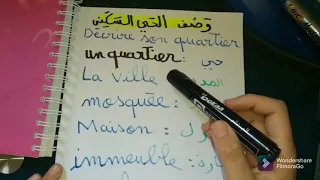 وصف الحي السكني
Décrire son quartier
un quartier: حي
La ville
mosquée:
Maison:
immeuble:
Wondershare
FilmoraGo